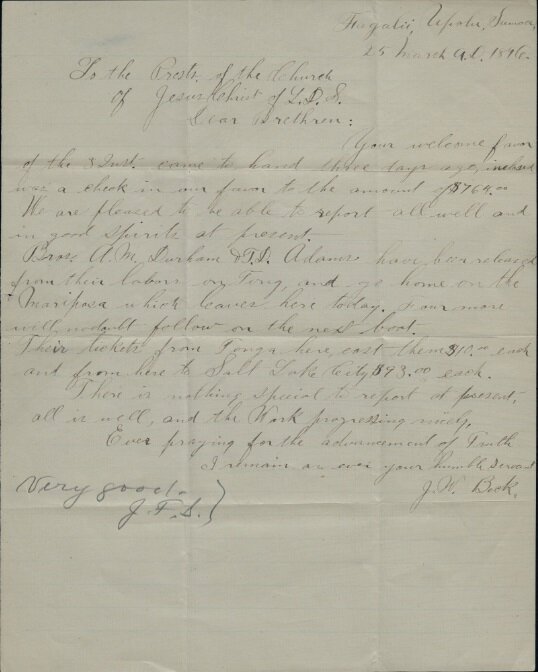 Fagalii, Upolu, Samoa,
25 March A.D. 1896.
To the Prests. of the Church
of Jesus Christ of L.D.S.
Dear Brethren:
Your welcome favor
of the 3 Inst. came to hand three days ago, inclosed
was a check in our favor to the amount of $764.00
We are pleased to be able to report all well and
in good spirits at present.
Bros. A.M. Durham & T.D. Adams have been released
from their labors on Tong, and go home on the
Mariposa which leaves here today. Four more
will no doubt follow on the next boat.
Their tickets from Tonga here, cost them $40.00 each
and from here to Salt Lake City $93.00 each.
There is nothing special to report at present,
all is well, and the Work progressing nicely.
Ever praying for the advancement of Truth
I remain as ever your humble servant
J. W. Beck.
Very good.
J. F. S. }